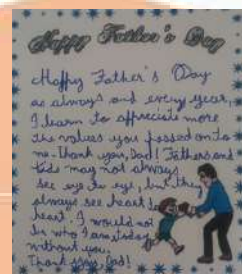 Happy Father's Day
Happy Father's Day
as always and every year,
I learn to appreciate more
the values you passed on to
me. Thank you, Dad! Fathers and
kids may not always
see eye to eye, but they
always see heart to
heart. I would not
be who I am today
without you.
Thank you, Dad!